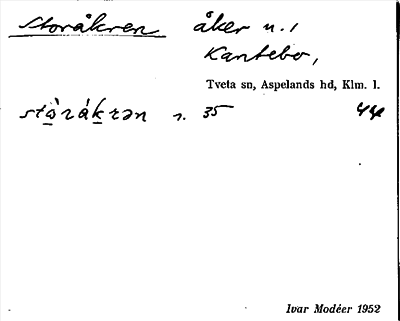 Storåkren åker n. 1
Kantebo,
Tveta sn, Aspelands hd, Klm. l.
stò̱ráḵrən 1. 35
Ivar Modéer 1952